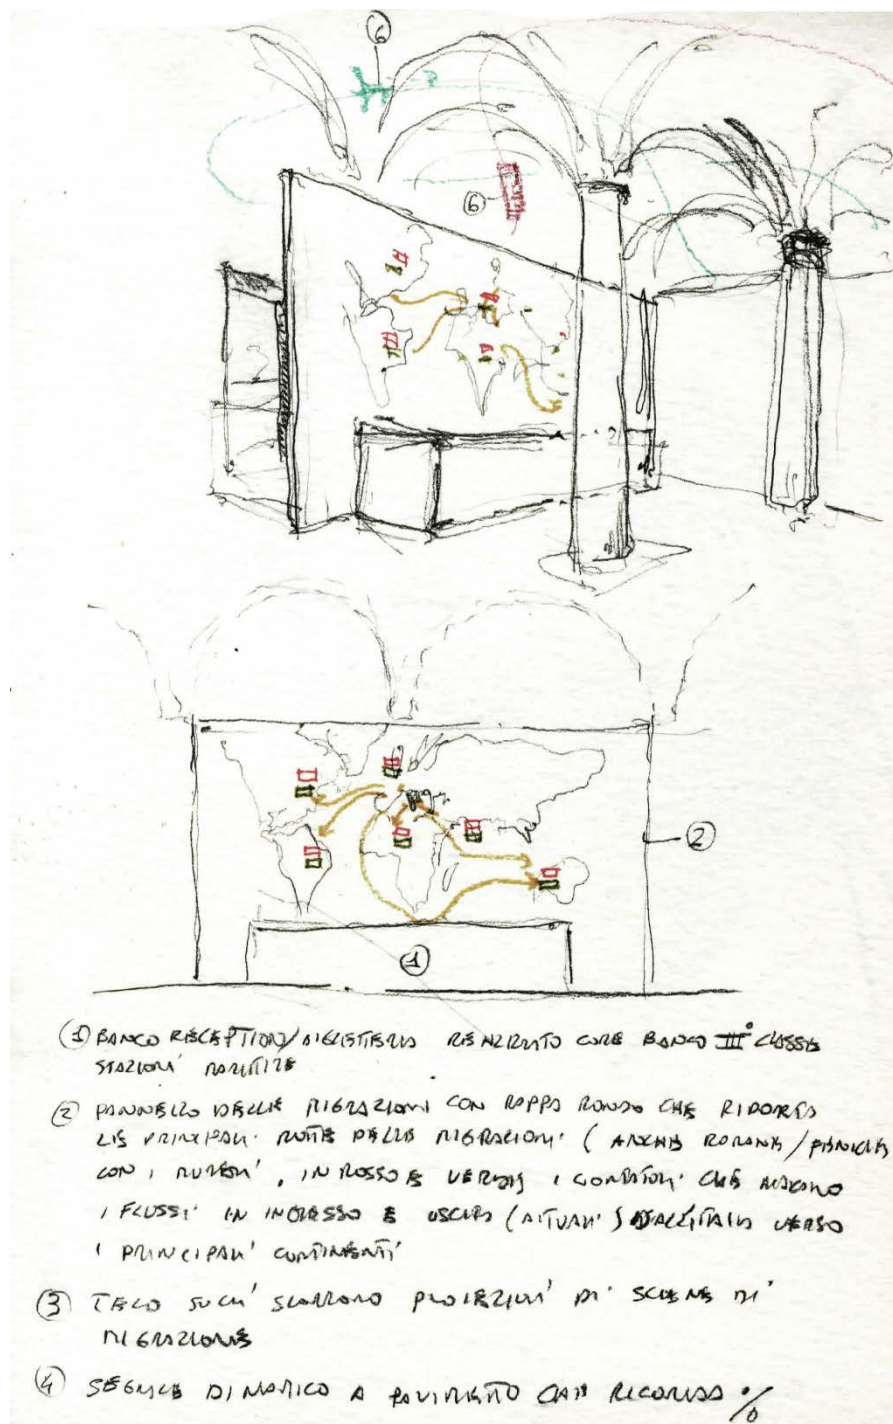 6
6
2
1
1 BANCO RECEPTION/BIGLIETTERIA REALIZZATO COME BANCO III° CLASSE
STAZIONI MARITTIME
2 PANNELLO DELLE MIGRAZIONI CON MAPPA MONDO CHE RIPORTA
LE PRINCIPALI ROTTE DELLE MIGRAZIONI (ANCHE ROMANE/
CON I NUMERI, IN ROSSO E VERDE I CONTATORI CHE
I FLUSSI IN INGRESSO E USCITA (ATTUALI) DALL'ITALIA VERSO
I PRINCIPALI CONTINENTI
3 TELO SU CUI SCORRONO PROIEZIONI DI SCENE DI
MIGRAZIONE
4 DINAMICO A PAVIMENTO CHE RICORDA %